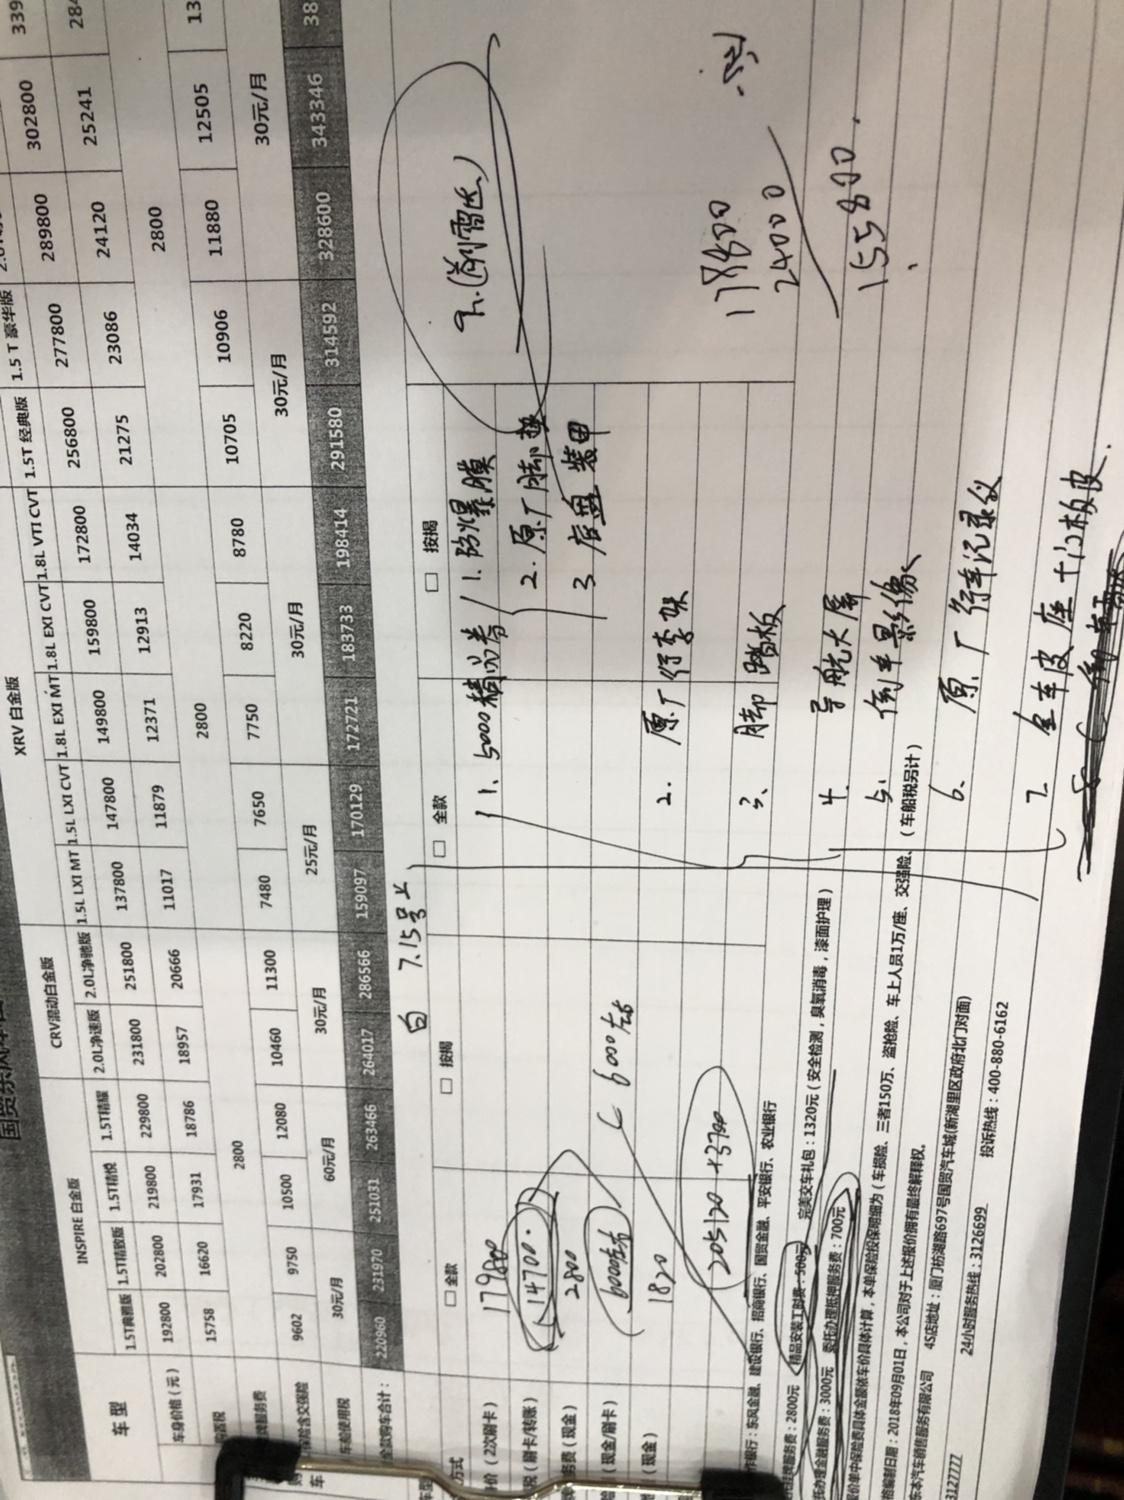 INSPIRE 白金版 CRV混动白金版 XRV 白金版
车型 1.5T典雅版 1.5T精致版 1.5T精悦 1.5T精耀 2.0L净速版 2.0L净驰版 1.5L LXI MT 1.5L LXI CVT 1.8L EXI MT 1.8L EXI CVT 1.8L VTI CVT 1.5T 经典版 1.5 T 豪华版
车身价格(元) 192800 202800 219800 229800 231800 251800 137800 147800 149800 159800 172800 256800 277800 289800 302800 339
15758 16620 17931 18786 18957 20666 11017 11879 12371 12913 14034 21275 23086 24120 25241 284
牌服务费 2800 2800 2800
保险含交强险 9602 9750 10500 12080 10460 11300 7480 7650 7750 8220 8780 10705 10906 11880 12505 13
车船使用税 30元/月 60元/月 30元/月 25元/月 30元/月 30元/月 30元/月
全款购车合计: 231970 251031 263466 264017 286566 159097 170129 172721 183733 198414 291580 314592 328600 343346 38
白 7.15号上
方式 □ 全款 □ 按揭 □ 全款 □ 按揭
价(2次刷卡) 179800
1. 5000精品券
1. 防爆膜
税(刷卡/转账) 14700.
2. 原厂脚垫
费(现金) 2800
3 底盘装甲
(现金/刷卡) 6000左右
6000左右
(现金) 1820
2. 原厂行李架
205120+3700
3、脚踏板
179800
24000
155800.
4. 导航大屏
5. 倒车影像
6、原厂行车记录仪
7. 全车皮座+门板皮
作银行:东风金融、建设银行、招商银行、国贸金融、平安银行、农业银行
挂牌服务费:2800元 精品安装工时费:500元 完美交车礼包:1320元(安全检测,臭氧消毒,漆面护理)
托办理金融服务费:3000元 委托办理抵押服务费:700元
报价单中保险费具体金额依车价具体计算,本单保险投保明细为(车损险、三者150万、盗抢险、车上人员1万/座、交强险、(车船税另计)
格编制日期:2018年09月01日,本公司对于上述报价拥有最终解释权。
东本汽车销售服务有限公司 4S店地址:厦门枋湖路697号国贸汽车城(新湖里区政府北门对面)
3127777 24小时服务热线:3126699 投诉热线:400-880-6162